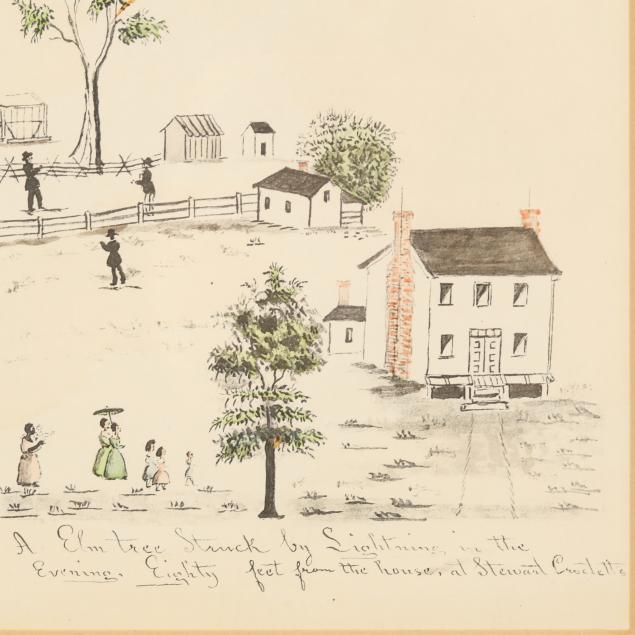 A Elm tree Struck by Lightning in the
Evening. Eighty feet from the house, at Stewart Crocketts